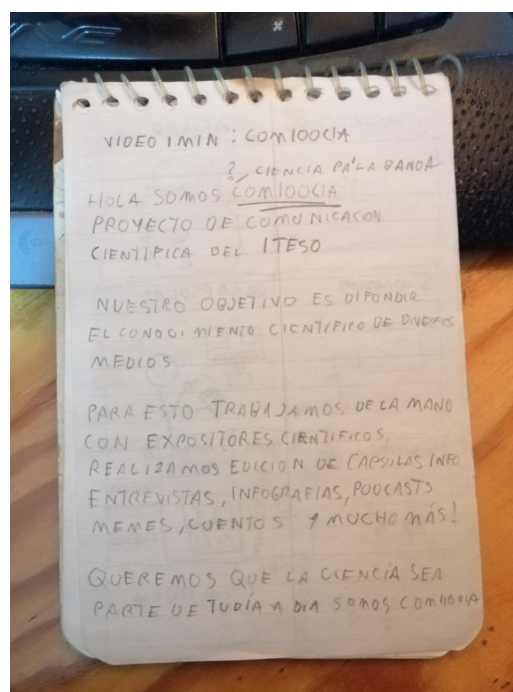 VIDEO 1 MIN : COM100CIA
? CIENCIA PA'LA BANDA
HOLA SOMOS COM100CIA
PROYECTO DE COMUNICACON
CIENTIFICA DEL ITESO
NUESTRO OBJETIVO ES DIFUNDIR
EL CONOCIMIENTO CIENTIFICO DE DIVERSOS
MEDIOS
PARA ESTO TRABAJAMOS DE LA MANO
CON EXPOSITORES CIENTIFICOS,
REALIZAMOS EDICION DE CAPSULAS INFO
ENTREVISTAS, INFOGRAFIAS, PODCASTS
MEMES, CUENTOS Y MUCHO MÁS!
QUEREMOS QUE LA CIENCIA SEA
PARTE DE TU DÍA A DIA SOMOS COM100CIA